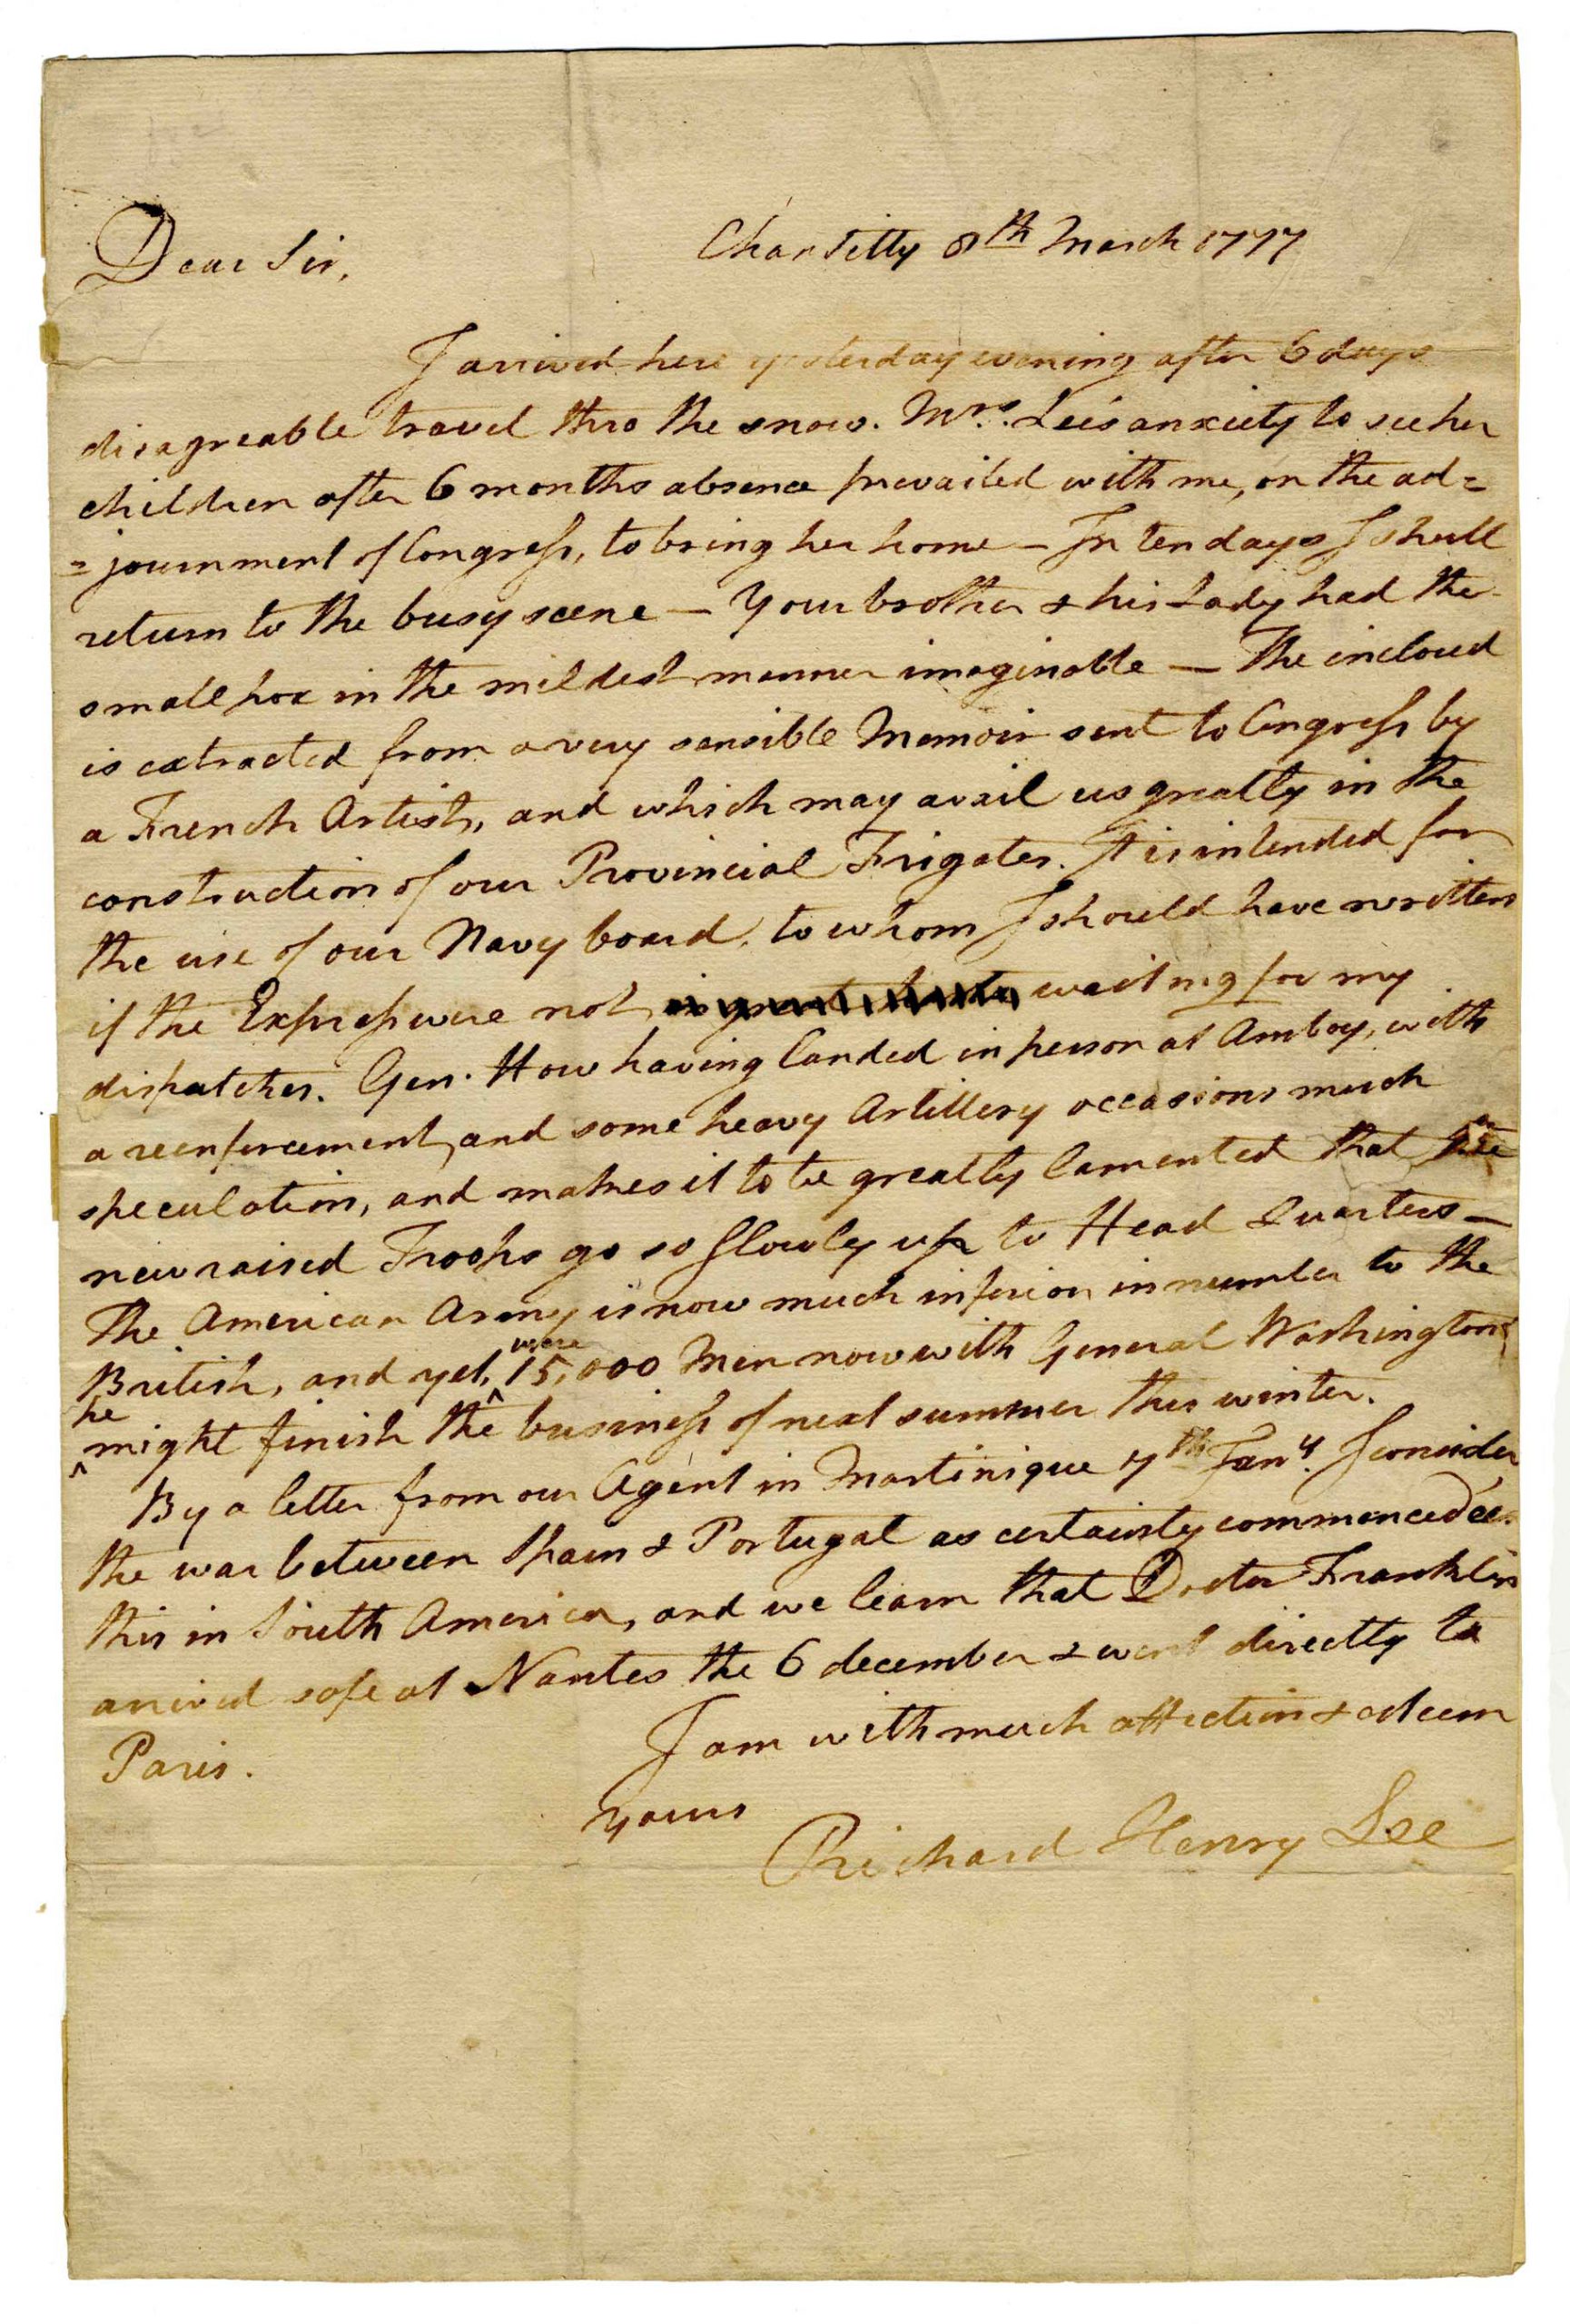 Dear Sir,
Chantilly 8th March 1777
I arrived here yesterday evening after 6 days
disagreable travel thro the snow. Mrs. Lee's anxiety to see her
children after 6 months absence prevailed with me, on the ad=
=journment of Congress, to bring her home — In ten days I shall
return to the busy scene — Your brother & his Lady had the
small pox in the mildest manner imaginable — The inclosed
is extracted from a very sensible Memoir sent to Congress by
a French Artist, and which may avail us greatly in the
construction of our Provincial Frigates. It is intended for
the use of our Navy board, to whom I should have written
if the Express were not in great haste waiting for my
dispatches. Gen. How having landed in person at Amboy, with
a reenforcement, and some heavy Artillery occasions much
speculation, and makes it to be greatly lamented that
new raised Troops go so slowly up to Head Quarters —
The American Army is now much inferior in number to the
British, and yet, were 15,000 Men now with General Washington
he might finish the business of next summer this winter.
By a letter from our Agent in Martinique 7th Jany. I consider
the war between Spain & Portugal as certainly commenced ere
this in South America, and we learn that Doctor Franklin
arrived safe at Nantes the 6 december & went directly to
Paris.
I am with much affection & esteem
yours
Richard Henry Lee